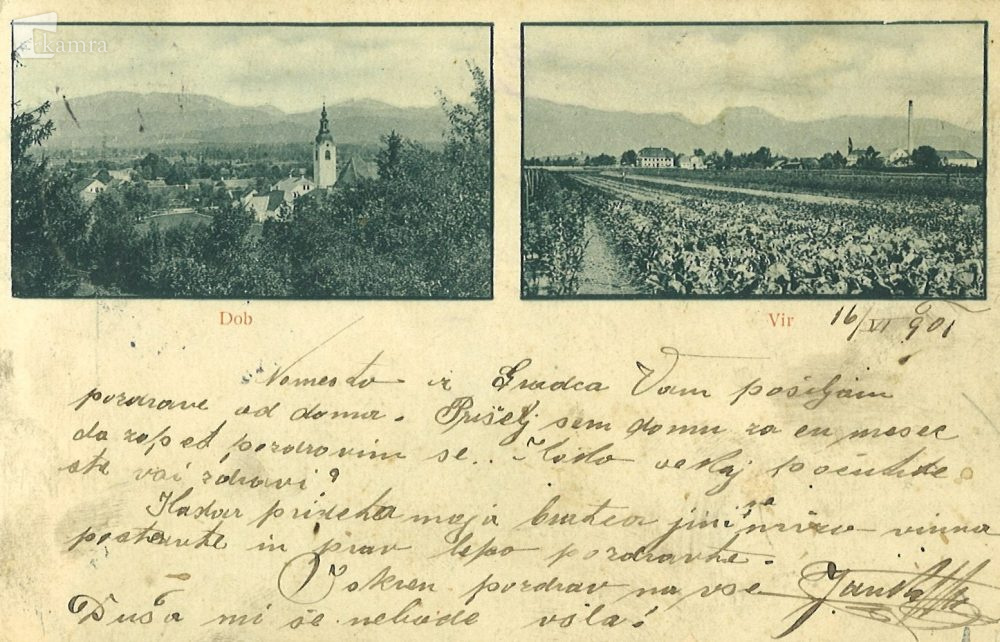 kamra
Dob
Vir
16/VI 901
Namesto iz Gradca Vam pošiljam
pozdrave od doma. Prišelj sem domu za en mesec
da zopet pozdravim se.. Kako vekaj počutite
ste vsi zdravi?
Kadar prideta moja bratca jim na mizo vinna
postavte in prav lepo pozdravte.
Iskren pozdrav na vse
Duša mi še nebode ušla!